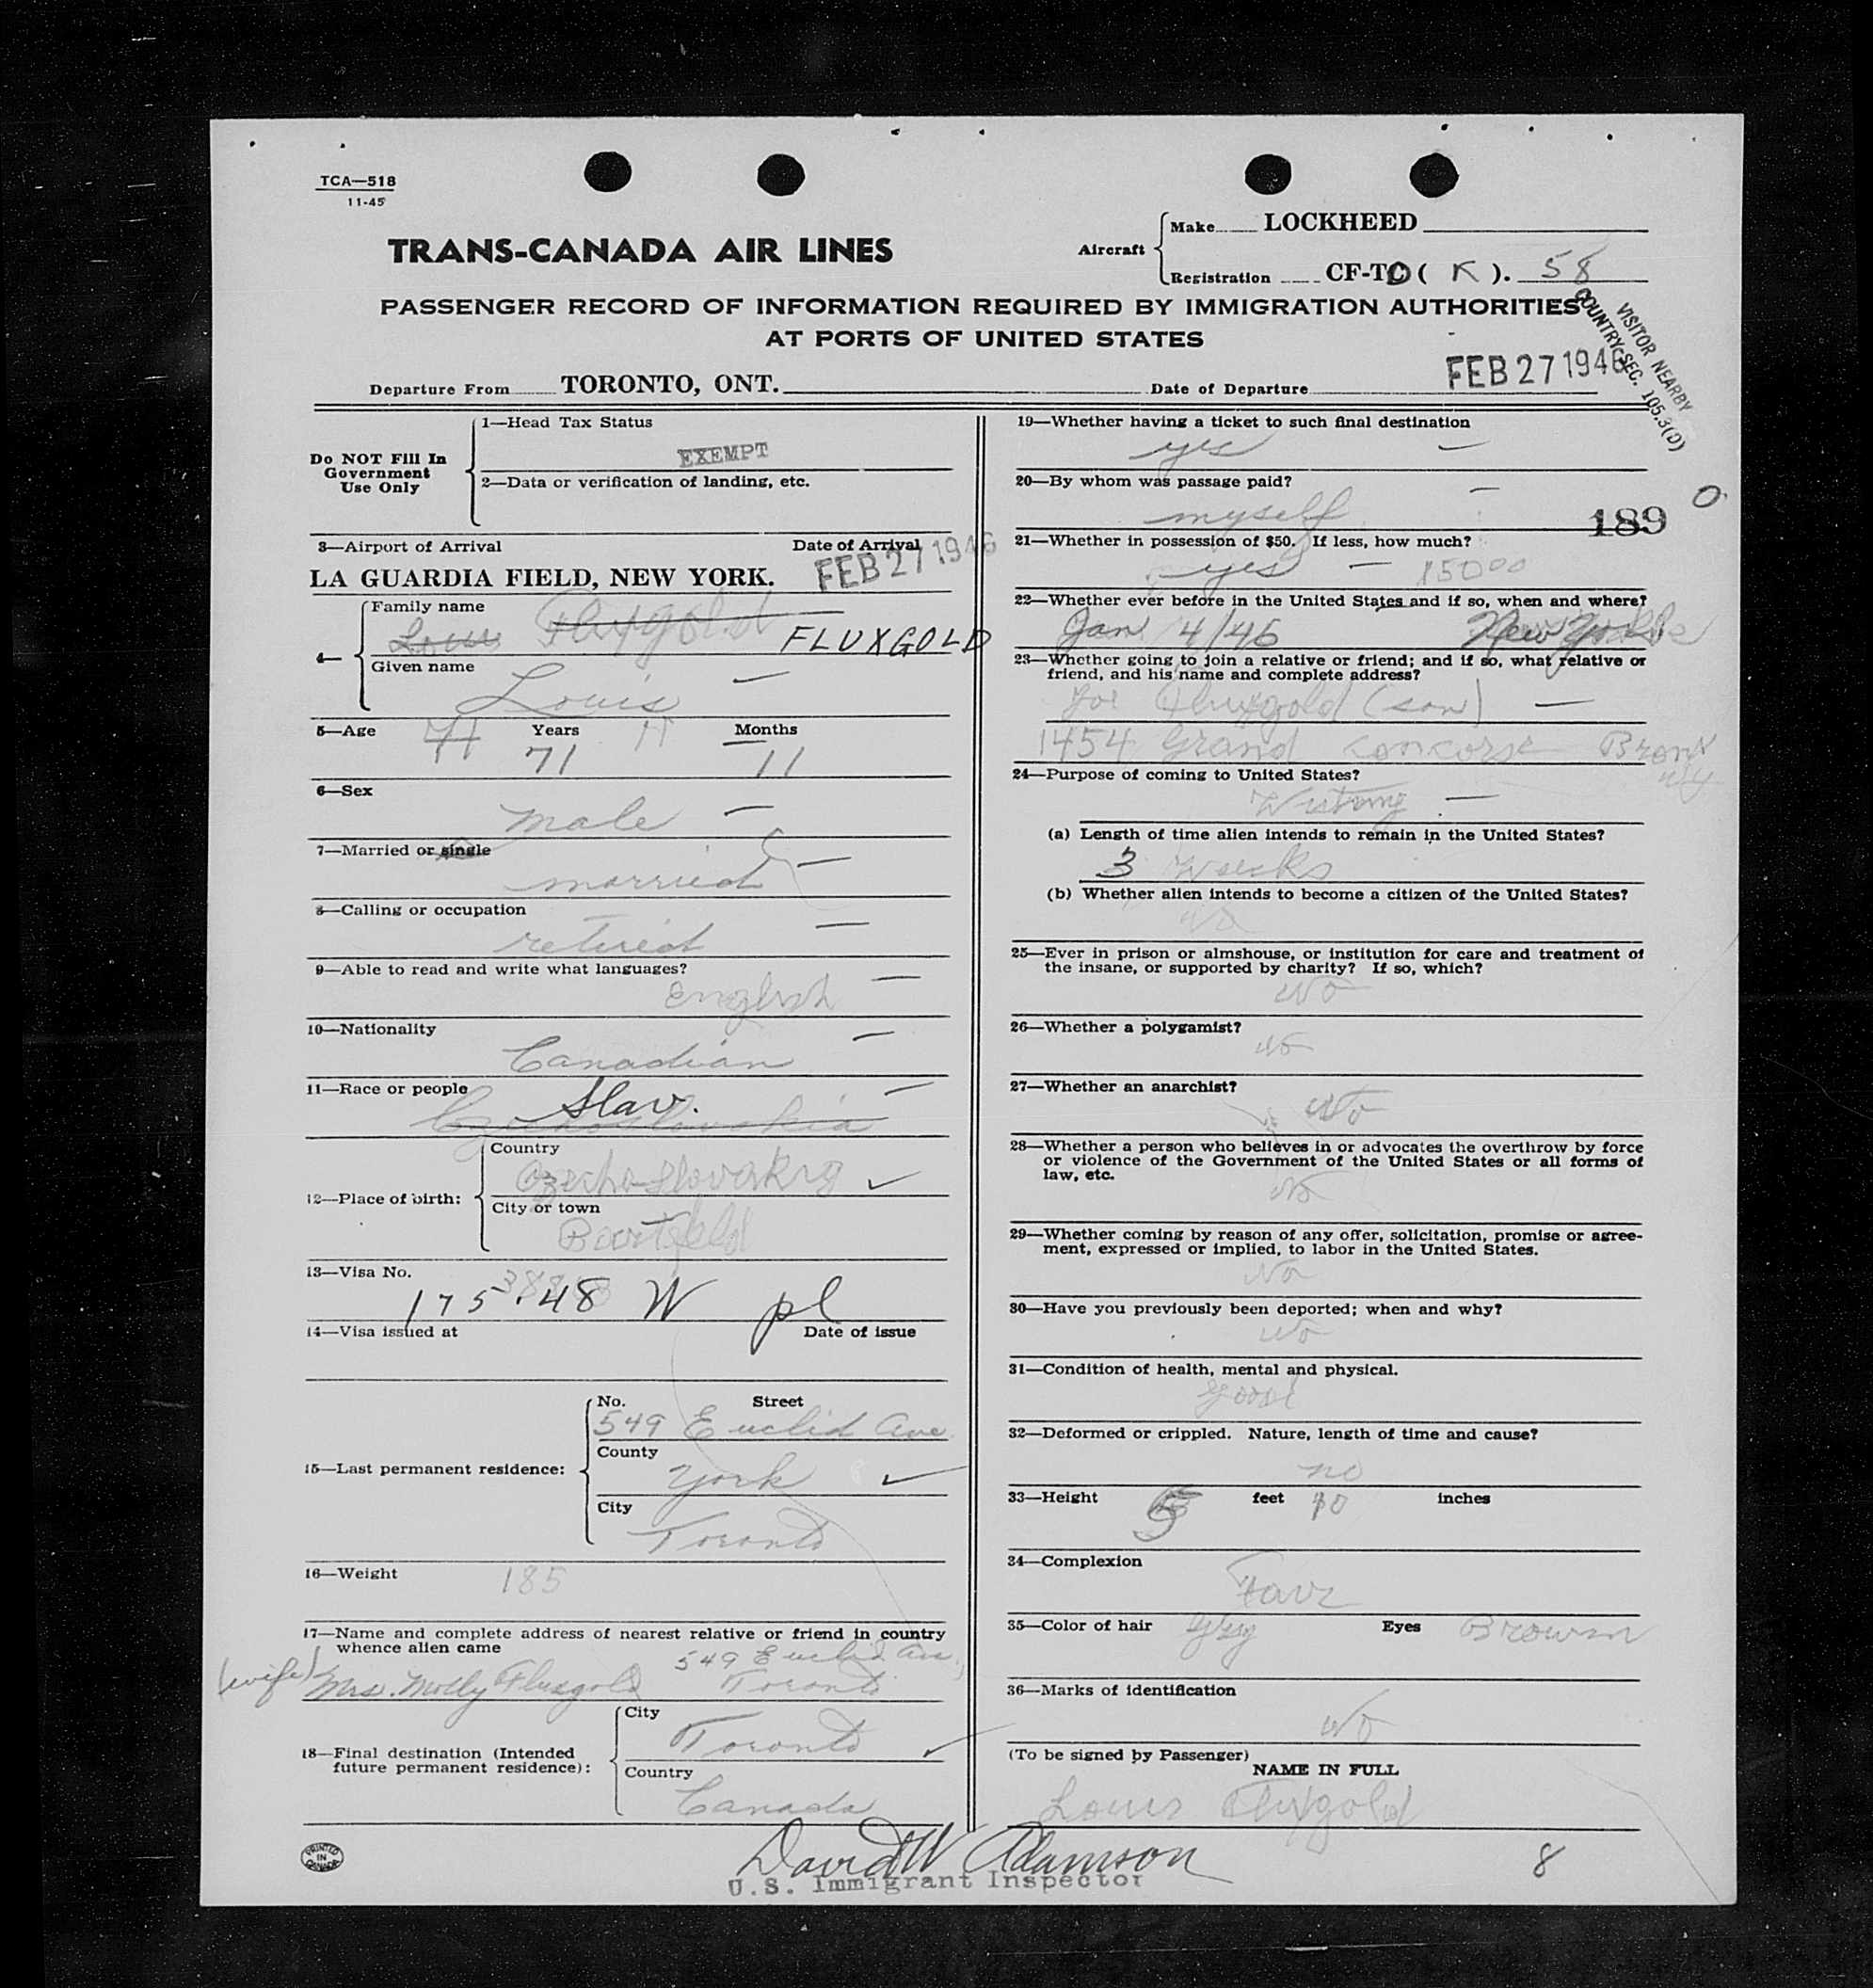 TCA—518
11-45
TRANS-CANADA AIR LINES
Aircraft
Make LOCKHEED
Registration CF-TC ( K ). 58
PASSENGER RECORD OF INFORMATION REQUIRED BY IMMIGRATION AUTHORITIES
AT PORTS OF UNITED STATES
VISITOR NEARBY
COUNTRY SEC. 105.3(D)
Departure From TORONTO, ONT. Date of Departure FEB 27 1946
Do NOT Fill In
Government
Use Only
1—Head Tax Status
EXEMPT
2—Data or verification of landing, etc.
3—Airport of Arrival Date of Arrival
LA GUARDIA FIELD, NEW YORK. FEB 27 1946
4—
Family name
Louis Fluxgold FLUXGOLD
Given name
Louis —
5—Age 71 Years 11 Months
71 11
6—Sex
Male —
7—Married or single
married —
8—Calling or occupation
retired —
9—Able to read and write what languages?
English —
10—Nationality
Canadian —
11—Race or people
Slav. —
Czechoslovakia
12—Place of birth:
Country
Czecho-Slovakia ✓
City or town
Bartfeld
13—Visa No.
175.48 W pl
14—Visa issued at Date of issue
15—Last permanent residence:
No. Street
549 Euclid Ave
County
York ✓
City
Toronto
16—Weight 185
17—Name and complete address of nearest relative or friend in country
whence alien came
549 Euclid Ave,
(wife) Mrs. Molly Fluxgold Toronto
18—Final destination (Intended
future permanent residence):
City
Toronto ✓
Country
Canada
19—Whether having a ticket to such final destination
yes —
20—By whom was passage paid?
myself —
189 0
21—Whether in possession of $50. If less, how much?
yes — 150 00
22—Whether ever before in the United States and if so, when and where?
Jan 4/46 New York
23—Whether going to join a relative or friend; and if so, what relative or
friend, and his name and complete address?
Joe Fluxgold (son) —
1454 Grand Concorse Bronx
NY
24—Purpose of coming to United States?
—
(a) Length of time alien intends to remain in the United States?
3 weeks
(b) Whether alien intends to become a citizen of the United States?
No
25—Ever in prison or almshouse, or institution for care and treatment of
the insane, or supported by charity? If so, which?
No
26—Whether a polygamist?
No
27—Whether an anarchist?
No
28—Whether a person who believes in or advocates the overthrow by force
or violence of the Government of the United States or all forms of
law, etc.
No
29—Whether coming by reason of any offer, solicitation, promise or agree-
ment, expressed or implied, to labor in the United States.
No
30—Have you previously been deported; when and why?
No
31—Condition of health, mental and physical.
good
32—Deformed or crippled. Nature, length of time and cause?
no
33—Height 5 feet 10 inches
34—Complexion
Fair
35—Color of hair Gray Eyes Brown
36—Marks of identification
No
(To be signed by Passenger)
NAME IN FULL
Louis Fluxgold
PRINTED
IN
CANADA
David W Adamson
U.S. Immigrant Inspector
8